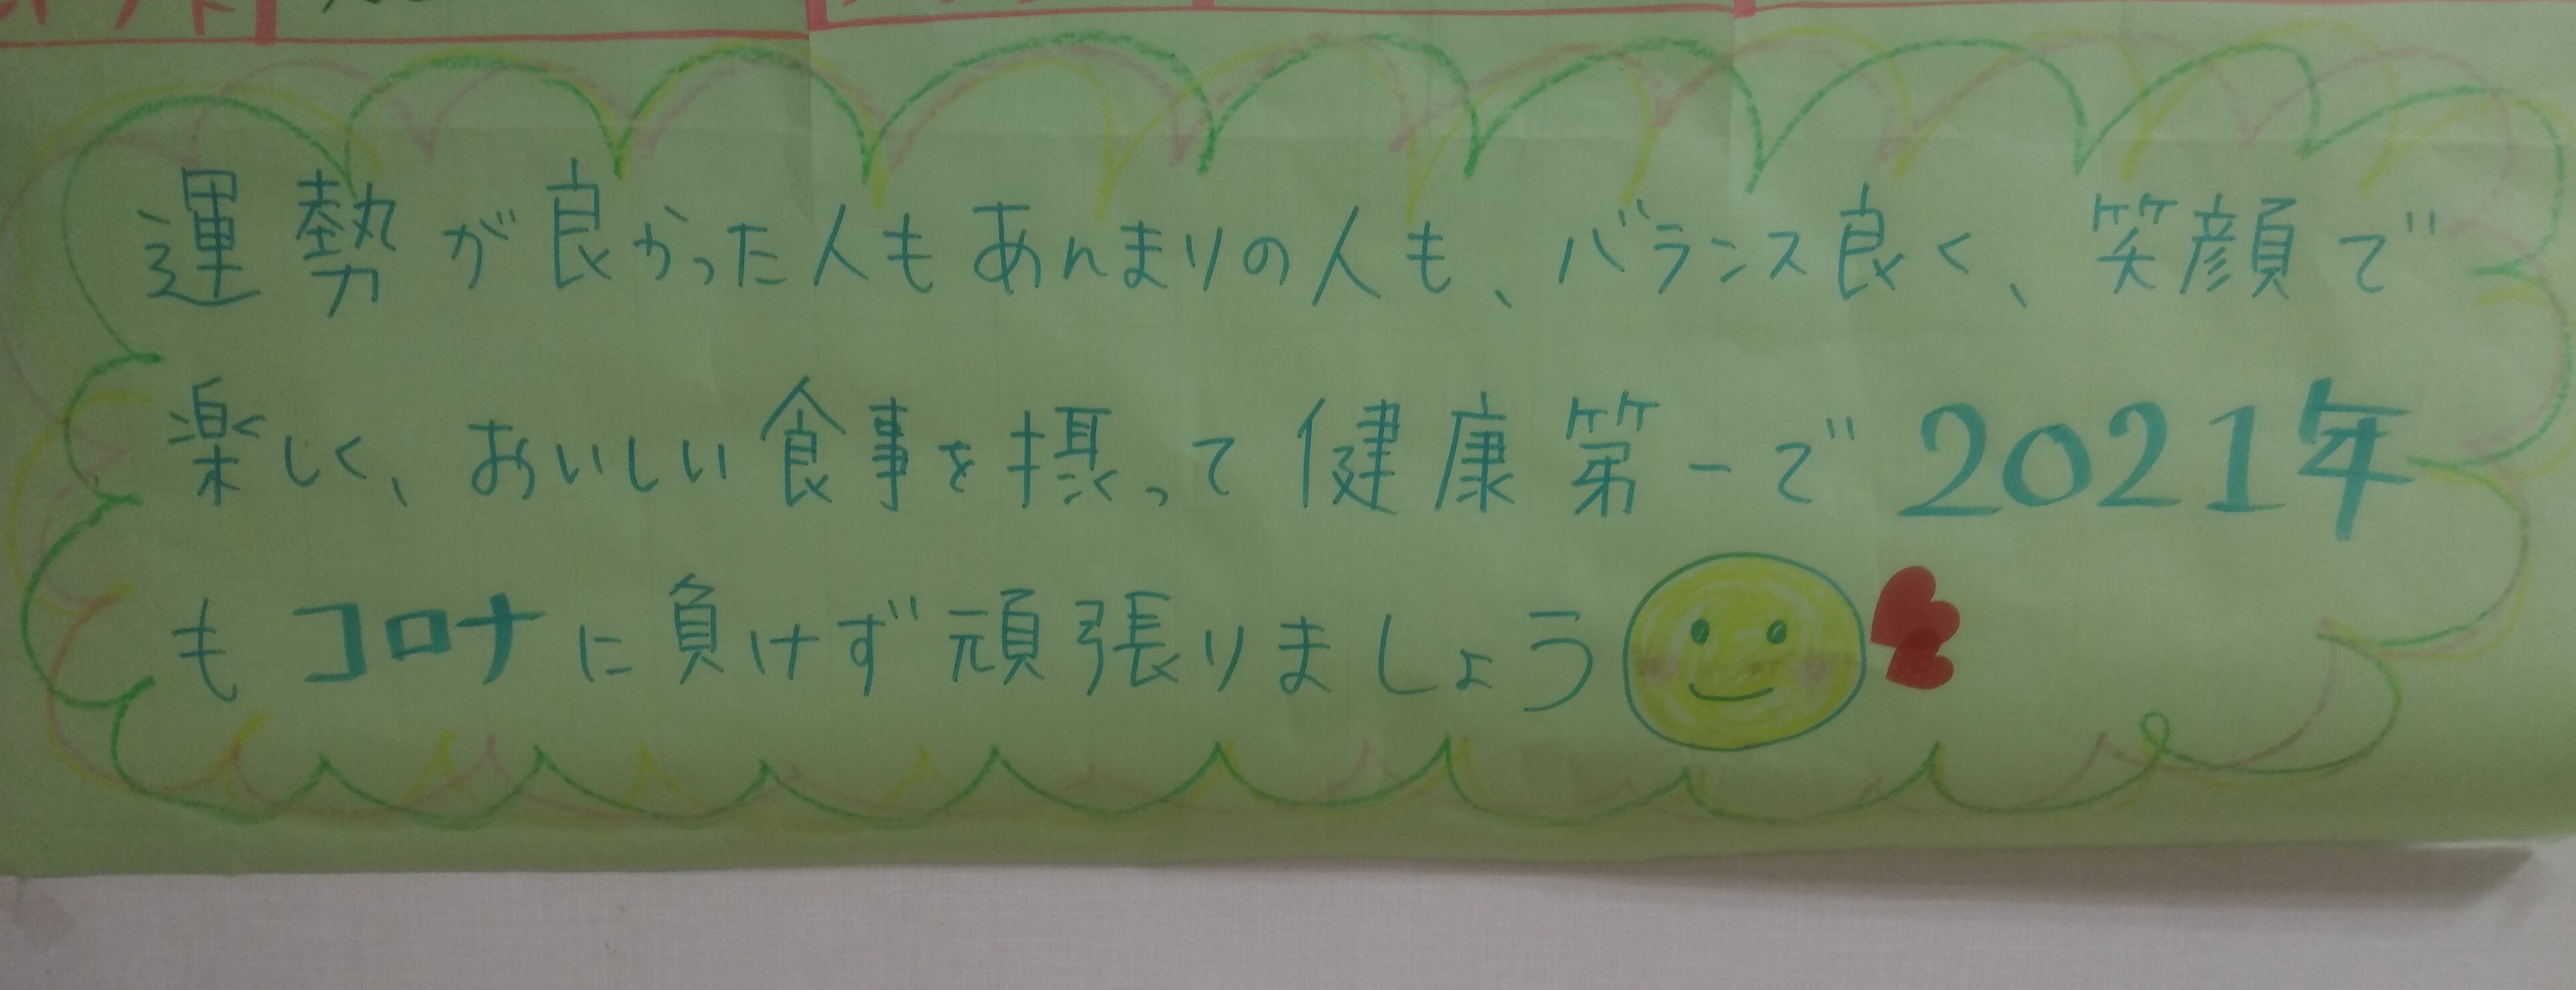 運勢が良かった人もあんまりの人も、バランス良く、笑顔で
楽しく、おいしい食事を摂って健康第一で2021年
もコロナに負けず頑張りましょう